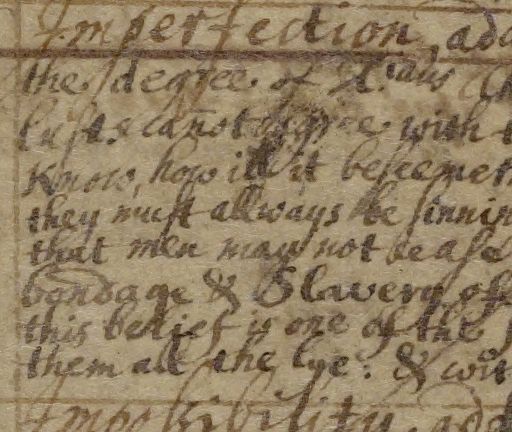 Imperfection, add
the degree of
lusts cañot agree with t
Know, how ill it beseemeth
they must allways be sinnin
that men may not cease
bondage & Slavery of
this belief is one of the
them all the lye: & wt
Impossibility, add